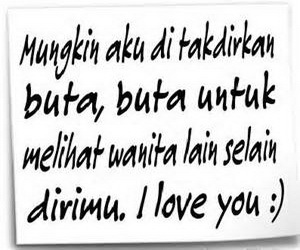 Mungkin aku di takdirkan
buta, buta untuk
melihat wanita lain selain
dirimu. I love you :)